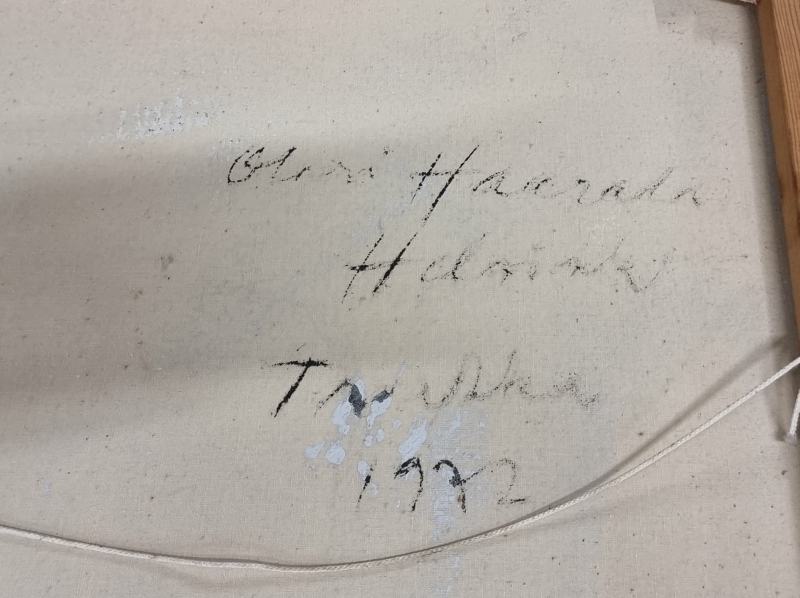 Olavi Haarala
Helsinki
1972